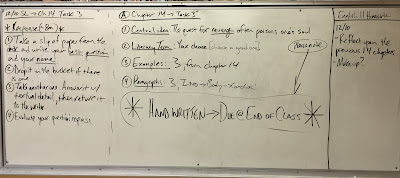 12/10 SL → Ch 14 Task 3
* Response (8m) *
① Take a slip of paper from the
desk and write your best question
and your name!
② Drop it in the bucket
③ Take another one. Answer it w/
textual detail, then return it
to the writer.
④ Evaluate your question
Ⓐ Chapter 14 → Task 3
① Central idea: The quest for revenge often poisons one's soul
② Literary Term: Your choice (choose a good one)
③ Examples: 3, from chapter 14
④ Paragraphs: 3, Intro → Body → Conclusion
* HAND WRITTEN → DUE @ END OF CLASS *
Homework
12/10
Reflect upon the
previous 14 chapters.
Makeup?